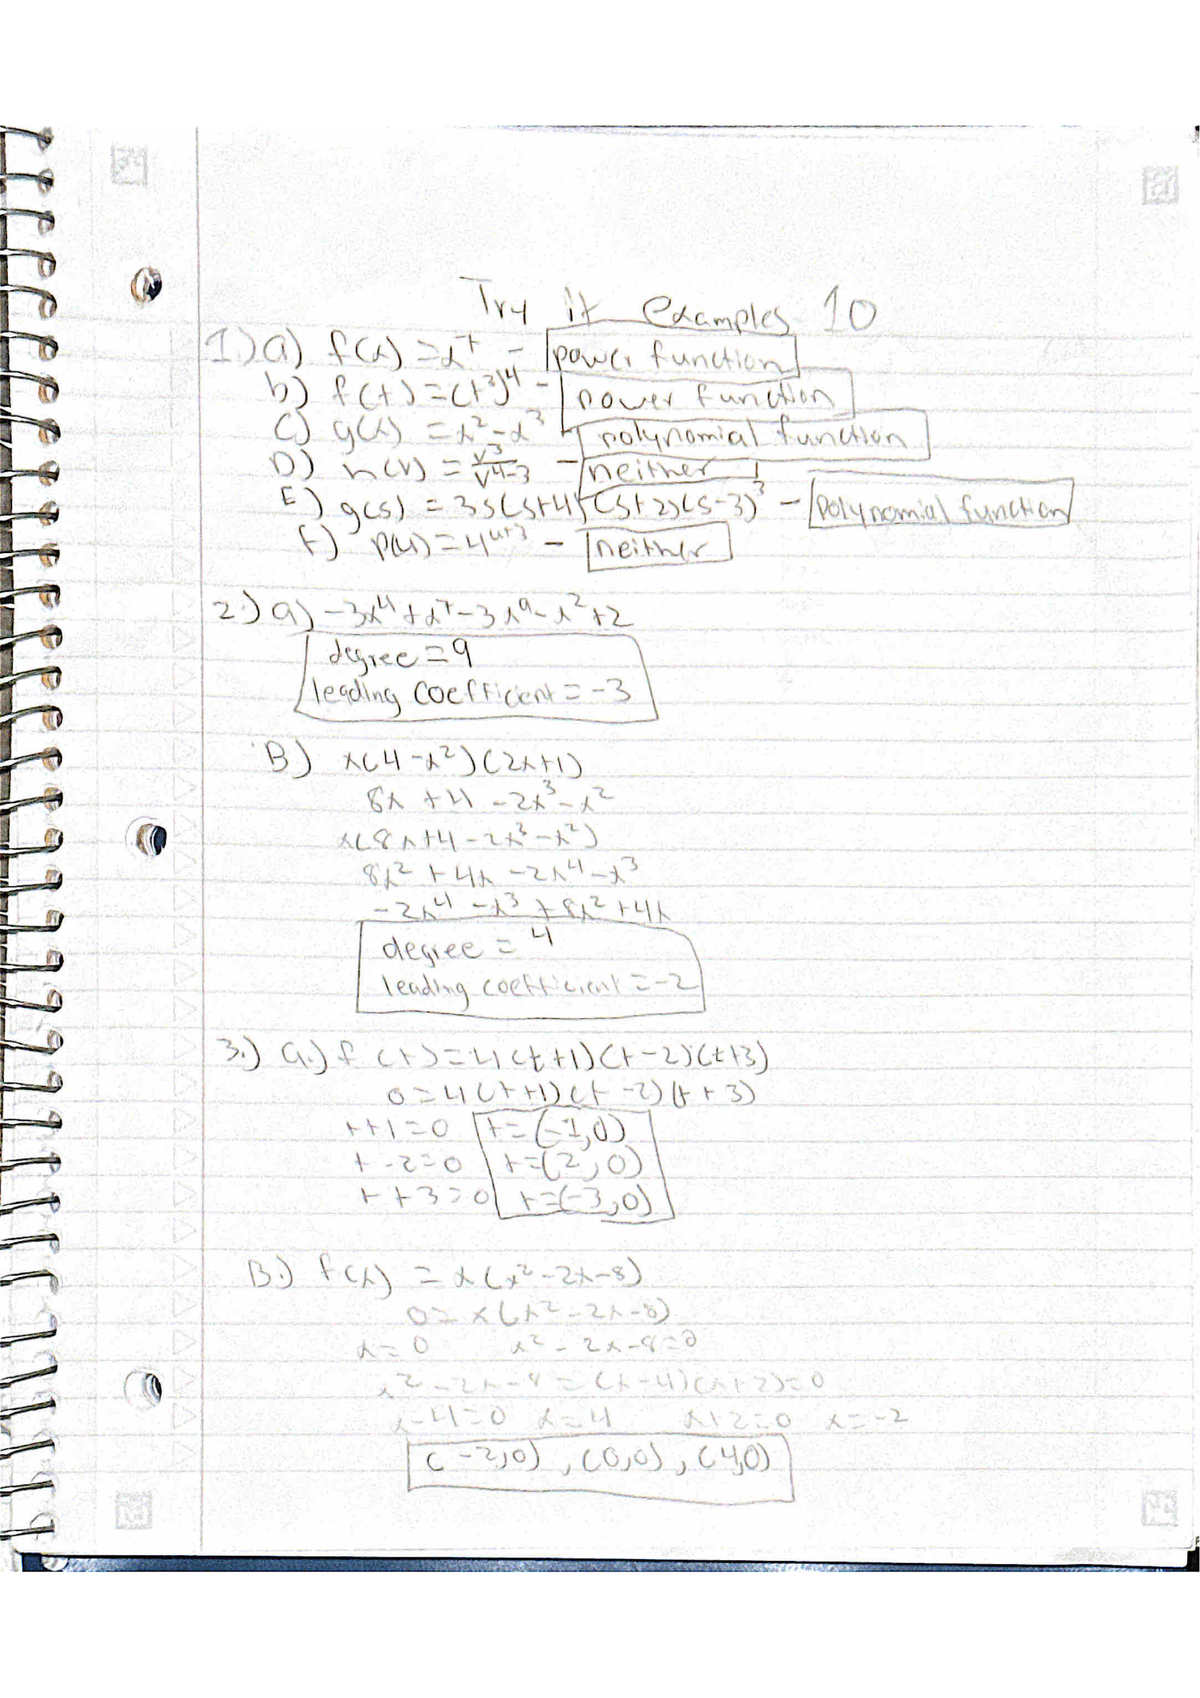 Try it examples 10
1.) a) f(x) = x^7 - power function
b) f(t) = (t^3)^4 - power function
C) g(x) = x^2 - x^3 - polynomial function
D) h(v) = v^3/v^4-3 - neither
E) g(s) = 3s(s+4)(s+2)(s-3)^3 - polynomial function
F) p(u) = 4^u+3 - neither
2.) a) -3x^4 + x^7 - 3x^9 - x^2 + 2
degree = 9
leading coefficient = -3
B) x(4-x^2)(2x+1)
8x + 4 - 2x^3 - x^2
x(8x+4-2x^3-x^2)
8x^2 + 4x - 2x^4 - x^3
-2x^4 - x^3 + 8x^2 + 4x
degree = 4
leading coefficient = -2
3.) a.) f(t) = 4(t+1)(t-2)(t+3)
0 = 4(t+1)(t-2)(t+3)
t+1=0 t=(-1,0)
t-2=0 t=(2,0)
t+3=0 t=(-3,0)
B.) f(x) = x(x^2-2x-8)
0 = x(x^2-2x-8)
x=0 x^2-2x-8=0
x^2-2x-8 = (x-4)(x+2)=0
x-4=0 x=4 x+2=0 x=-2
(-2,0), (0,0), (4,0)